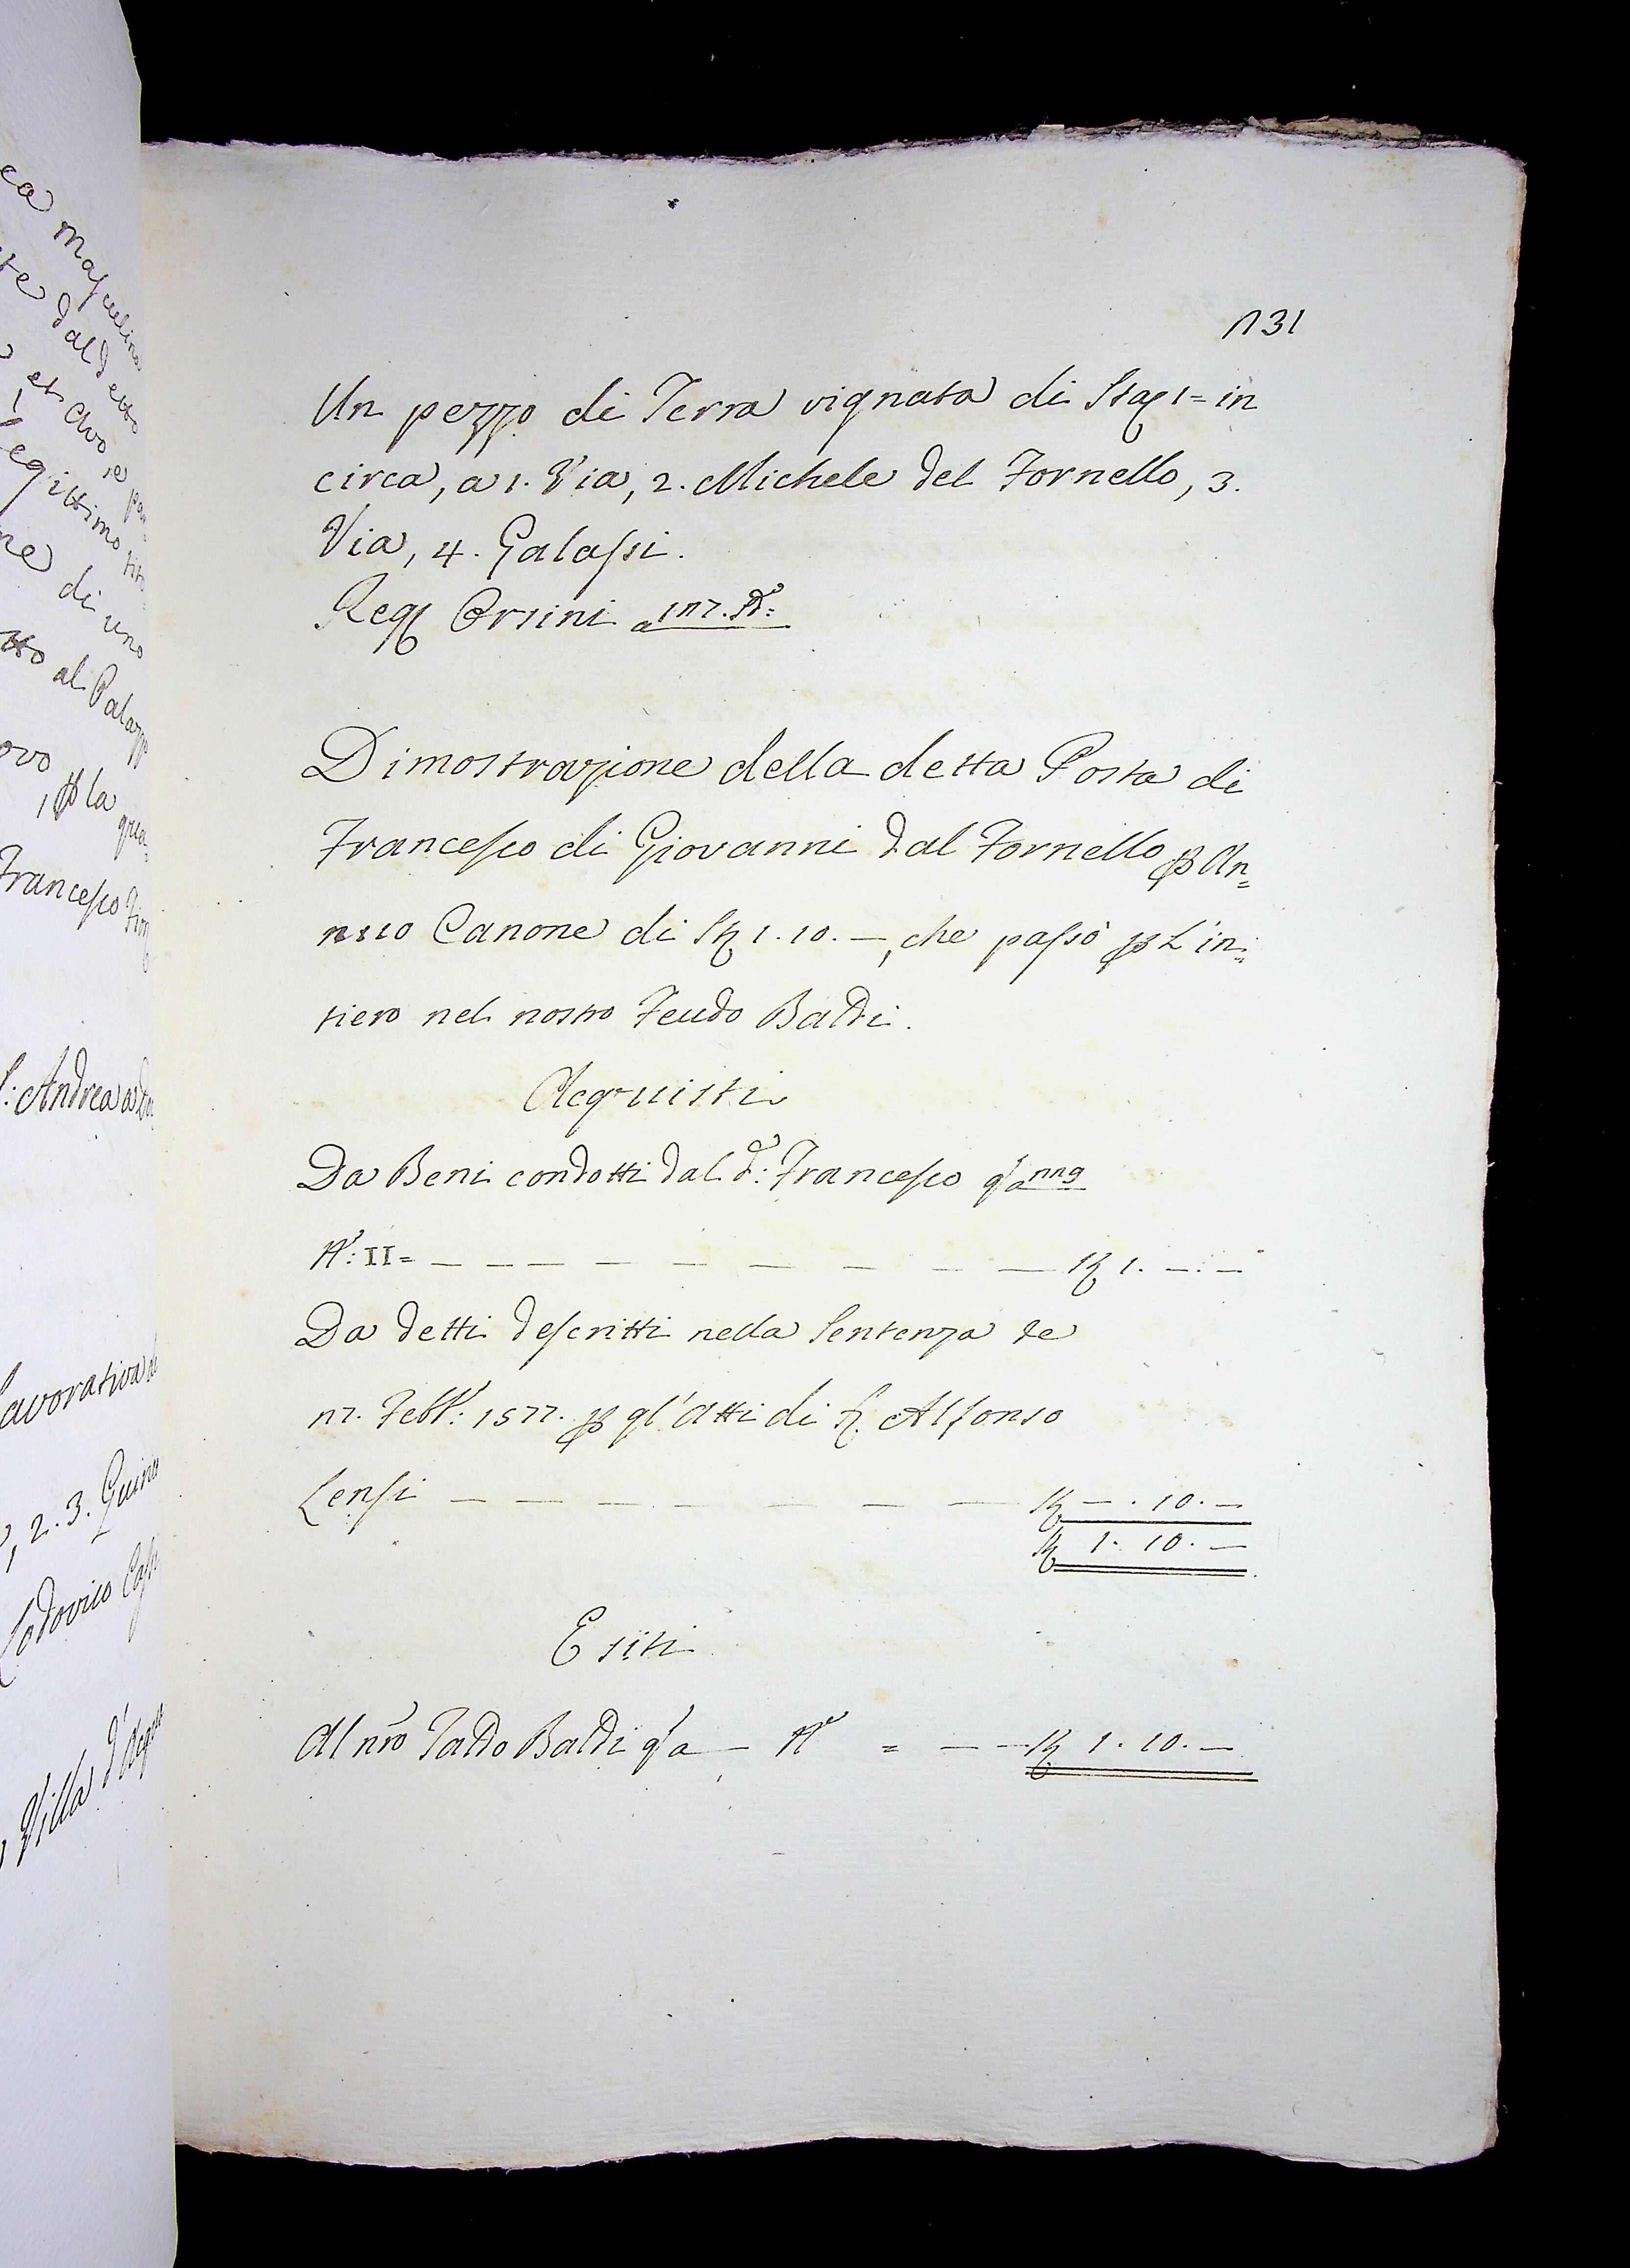 1131
Un pezzo di Terra vignata di Sta 1= in
circa, a 1. Via, 2. Michele del Fornello, 3.
Via, 4. Galassi.
Orsini a
Dimostrazione della detta Posta di
Francesco di Giovanni dal Fornello p An=
nuo Canone di 1. 10. —, che passò p l'in=
tiero nel nostro Feudo Baldi.
Acquisti
Da Beni condotti dal d.: Francesco q a 119
N.: II= — — — — — — — — 1. —. —
Da detti descritti nella Sentenza de
Febb.: 1577. p gl'Atti di Alfonso
Lensi — — — — — — — — . 10. —
1. 10. —
Esiti
Al nro Baldi q a — N = — — 1. 10. —
ea Masculina
te dal detto
et Avo
legittimo
ne di uno
al Palazz
ovo
, p la qua=
Francesco
S: Andrea a
Lavorativa
, 2. 3.
Lodovico
Villa d'